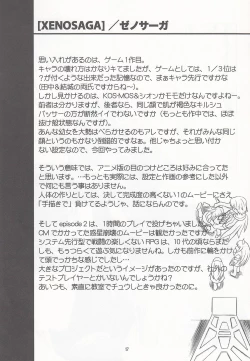 [XENOSAGA]／ゼノサーガ
思い入れがあるのは、ゲーム1作目。
キャラの壊れ方はかなりキてましたが、ゲームとしては、1／3位は
？が付くような出来だった記憶なので、まぁキャラ先行ですかな
(田中&結城の両氏ですからね～)。
しかし見かけるのは、KOS-MOS&シオンかモモですかねぇ～。
前者は分かりますが、後者なら、同じ顔で肌が褐色なキルシュ
バッサーの方が断然イイでわないですか (もっとも作中では、ほぼ
抜け殻状態なんですが)。
あんな幼女を大勢はべらせるのもアレですが、それがみんな同じ
顔というのもかなり倒錯的ですなぁ。でもちょっと思い付か
ない設定なので、今回やってみました。
そういう意味では、アニメ版の目のつけどころは好みに合ってた
と思います。…もっとも実際には、設定と作画の参考にした以外
で何にも言う事はありません。
人体の作りとしては、決して完成度の高くない1のムービーにさえ
「手描きで」負けてるようじゃ、話にならんのです。
そして episode 2 は、1時間のプレイで投げちゃいました。
CM でかかってた惑星崩壊のムービーは観たかったですが…
システム先行型で戦闘が楽しくないRPG は、10 代の頃ならまだ
しも、もうつらくて遊ぶ気になりませんな。しかも前作に輪をかけ
て頭でっかちな感じでしたし…
大きなプロジェクトだというイメージがあったのですが、社外の
テストプレイヤーとかいないんでしょうかね?
あぁいや、素直に教室でチュウしときゃ良かったのに。